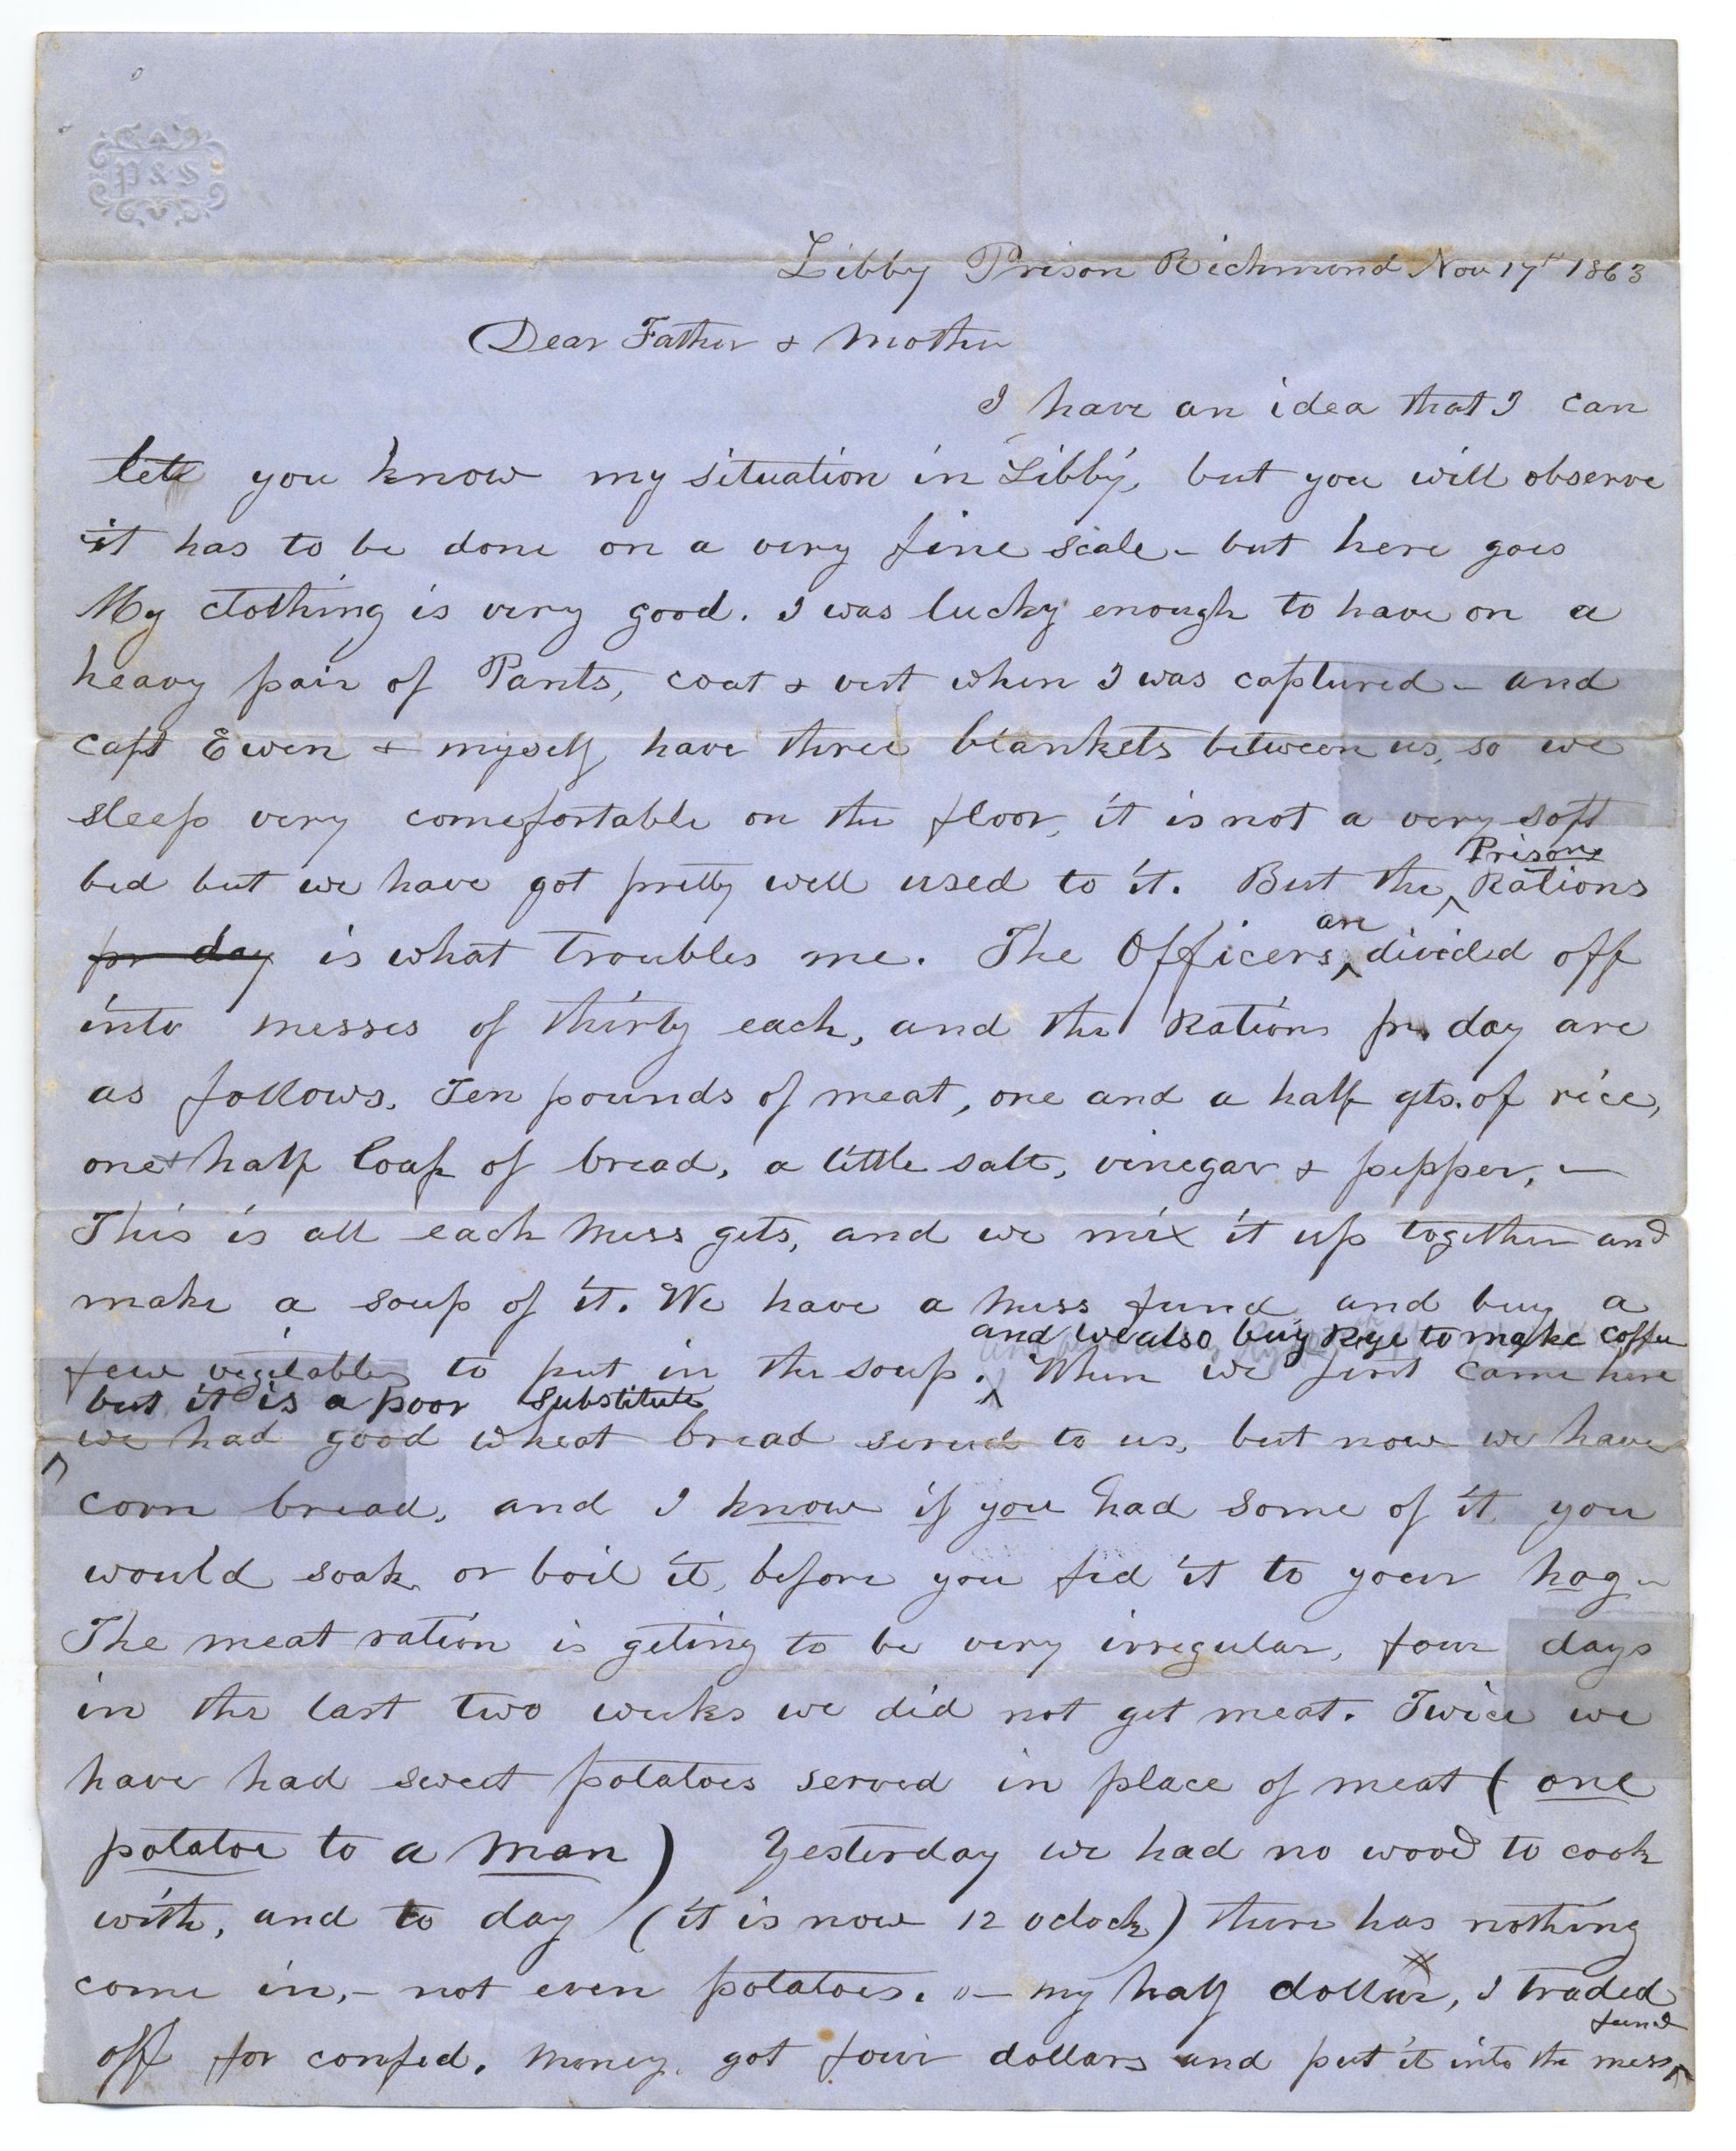 P & S
Libby Prison Richmond Nov 17th 1863
Dear Father & Mother
I have an idea that I can
let you know my situation in Libby, but you will observe
it has to be done on a very fine scale - but here goes
My clothing is very good. I was lucky enough to have on a
heavy pair of Pants, coat & vest when I was captured - and
Capt Ewen & myself have three blankets between us, so we
sleep very comefortable on the floor, it is not a very soft
bed but we have got pretty well used to it. But the ^ Prison Rations
pr day is what troubles me. The Officers ^ are divided off
into messes of thirty each, and the Rations pr. day are
as follows. Ten pounds of meat, one and a half qts. of rice,
one & half loaf of bread, a little salt, vinegar & pepper, —
This is all each mess gets, and we mix it up together and
make a soup of it. We have a mess fund and buy a
and we also buy Rye to make coffee
few vegitables to put in the soup. ^ When we first came here
but it is a poor substitute
^ we had good wheat bread served to us, but now we have
corn bread, and I know if you had some of it you
would soak or boil it, before you fed it to your hog -
The meat ration is geting to be very irregular, four days
in the last two weeks we did not get meat. Twice we
have had sweet potatoes served in place of meat ( one
potatoe to a man ) Yesterday we had no wood to cook
with, and to day ( it is now 12 oclock ) there has nothing
come in, - not even potatoes. - my half dollar, I traded
off for confed. money. got four dollars and put it into the mess ^ fund